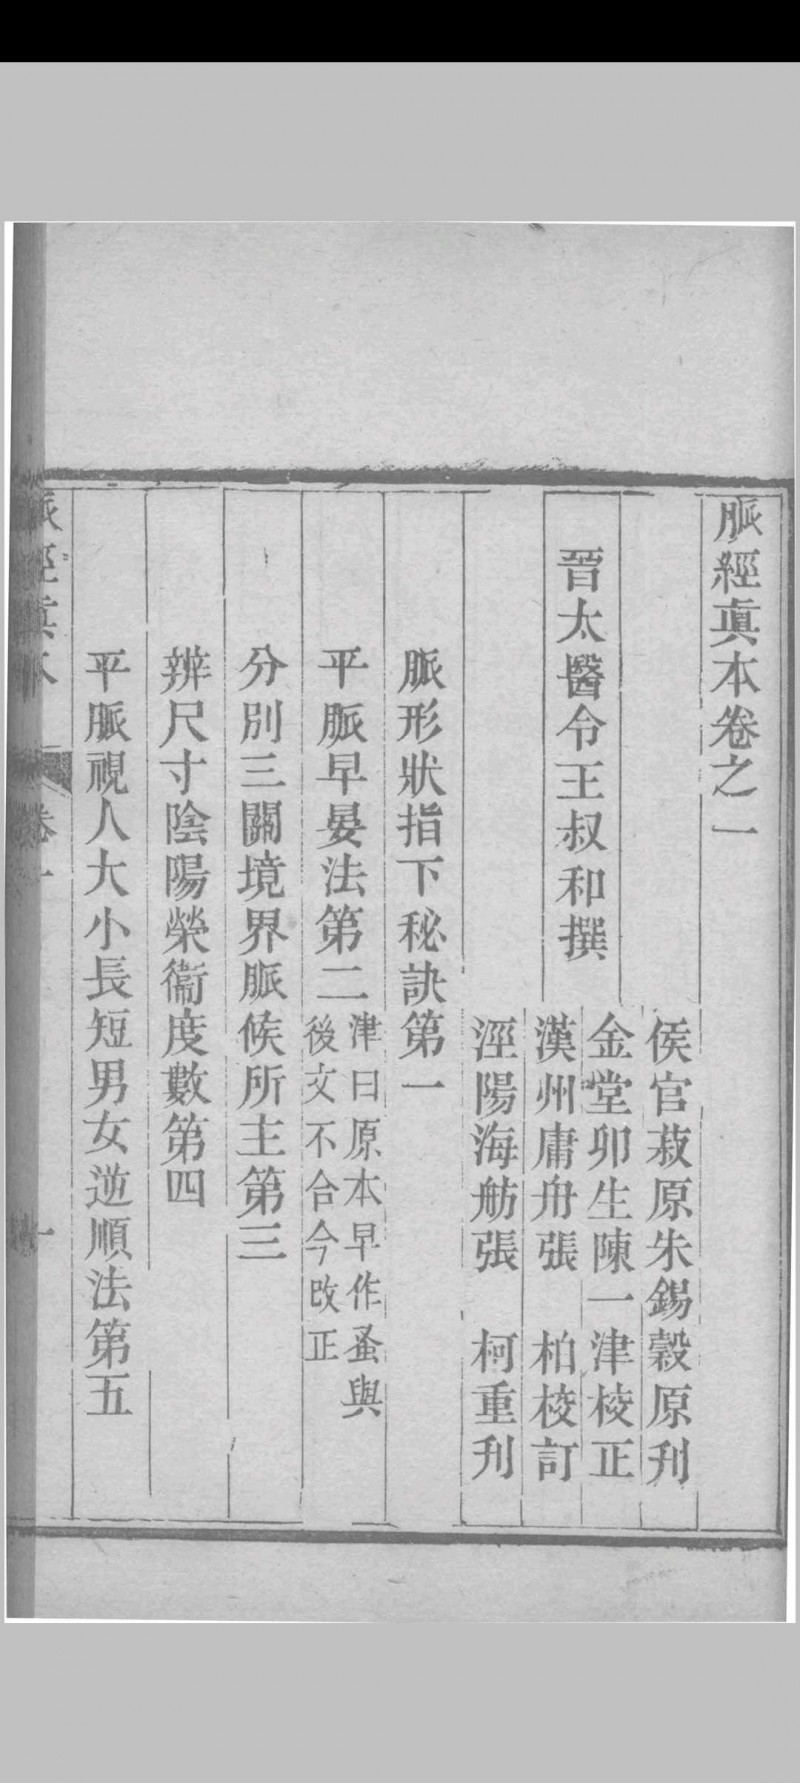 脈經眞本卷之一
晉太醫令王叔和撰
侯官菽原朱錫穀原刋
金堂卯生陳一津校正
漢州庸舟張　柏校訂
涇陽海舫張　柯重刋
脈形狀指下秘訣第一
平脈早晏法第二津曰原本早作蚤與後文不合今改正
分別三關境界脈候所主第三
辨尺寸陰陽榮衞度數第四
平脈視人大小長短男女逆順法第五
脈經眞本
卷一
一